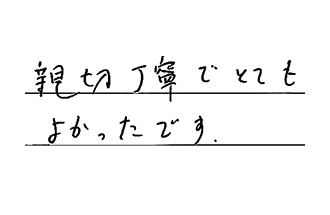 親切丁寧でとても
よかったです.